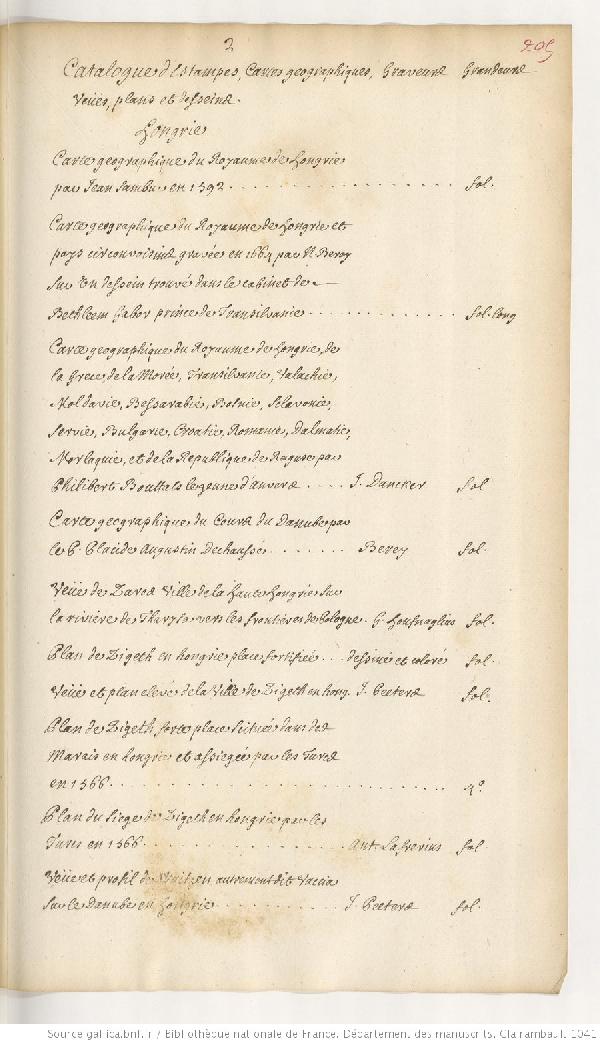 2
205
Catalogue d'Estampes, Cartes geographiques, Graveurs Grandeurs
Veües, plans et desseins.
Hongrie
Carte geographique du Royaume de Hongrie
par Jean Sambuc en 1592 . . . . . . fol.
Carte geographique du Royaume de Hongrie et
pays circonvoisins gravée en 1664 par N. Berey
sur un dessein trouvé dans le cabinet de
Bethleem Gabor prince de Transilvanie . . . . . . fol. long
Carte geographique du Royaume de Hongrie, de
la Grece de la Morée, Transilvanie, Valachie,
Moldavie, Bessarabie, Bosnie, Sclavonie,
Servie, Bulgarie, Croatie, Romanie, Dalmatie,
Morlaquie, et de la Republique de Raguse par
Philibert Bouttats le jeune d'anvers . . . . J. Dancker fol
Carte geographique du Cours du Danube par
le P. Placide Augustin Dechaussé . . . . . . Berey fol.
Veüe de Ville de la haute Hongrie sur
la riviere de vers les frontieres de Pologne. G. Houfnaglius fol.
Plan de Zigeth en hongrie place fortifiée . . . dessiné et coloré fol.
Veüe et plan elevé de la Ville de Zigeth en hong. J. Peeters fol.
Plan de Zigeth forte place située dans des
Marais en hongrie et assiegée par les Turcs
en 1566 . . . . . . 4°
Plan du siege de Zigeth en hongrie par les
Turcs en 1566 . . . . . . Ant. Lafrerius fol
Veüe et profil de autrement dit Vaccia
sur le Danube en hongrie . . . . . . J. Peeters fol.
Source gallica.bnf.fr / Bibliothèque nationale de France. Département des manuscrits. Clairambault 1041